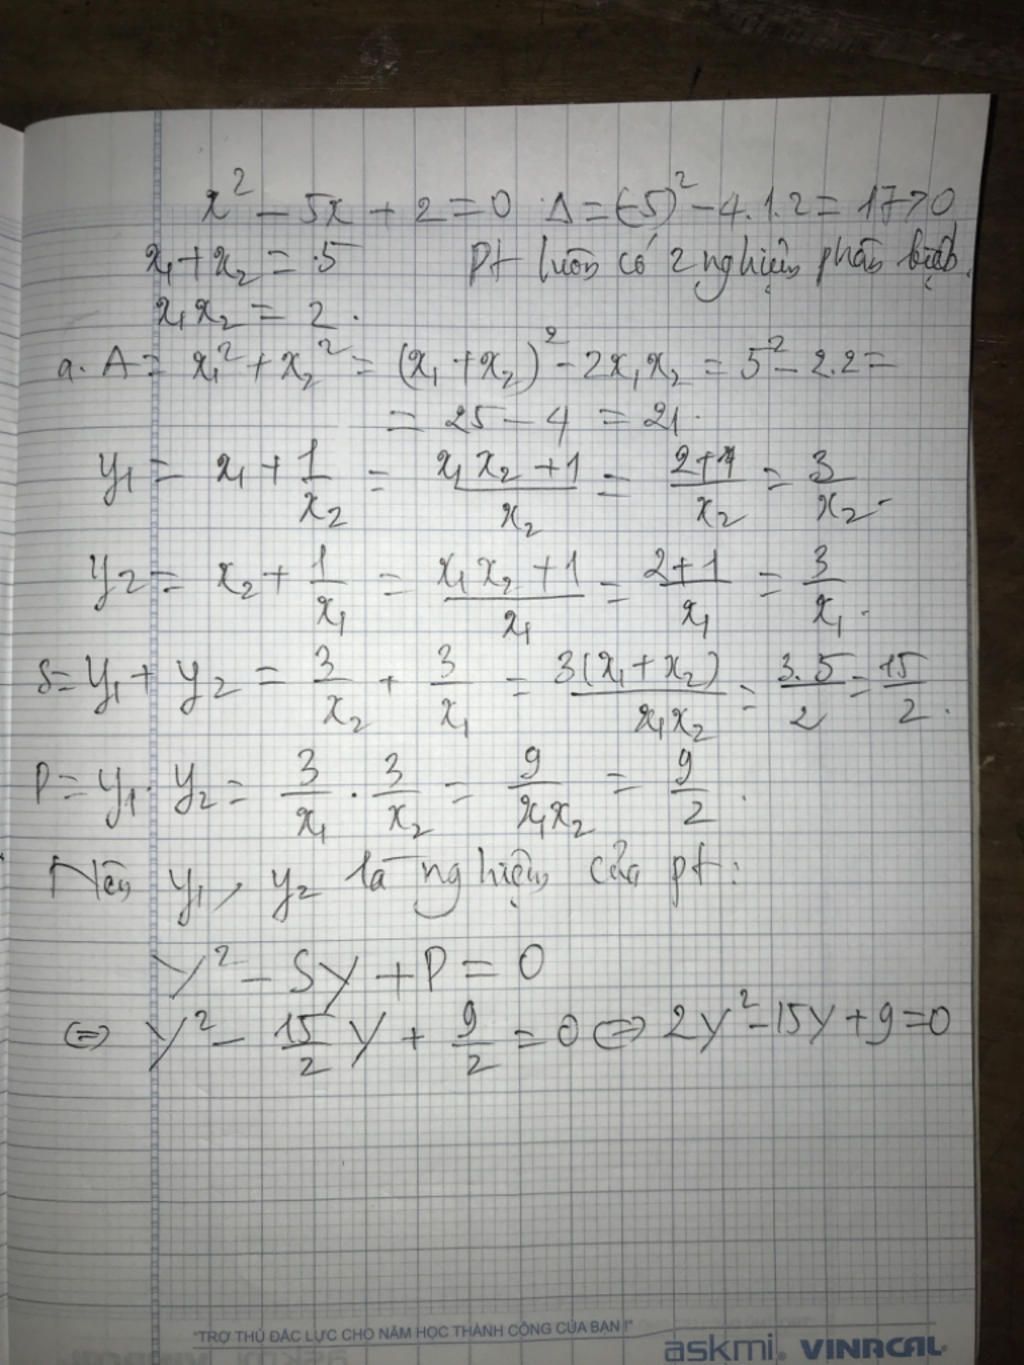 x² - 5x + 2 = 0 Δ = (-5)² - 4.1.2 = 17 > 0
x₁ + x₂ = 5 Pt luôn có 2 nghiệm phân biệt.
x₁x₂ = 2.
a. A = x₁² + x₂² = (x₁ + x₂)² - 2x₁x₂ = 5² - 2.2 =
= 25 - 4 = 21.
y₁ = x₁ + 1/x₂ = (x₁x₂ + 1)/x₂ = (2+1)/x₂ = 3/x₂.
y₂ = x₂ + 1/x₁ = (x₁x₂ + 1)/x₁ = (2+1)/x₁ = 3/x₁.
S = y₁ + y₂ = 3/x₂ + 3/x₁ = 3(x₁ + x₂)/(x₁x₂) = 3.5/2 = 15/2.
P = y₁ . y₂ = 3/x₁ . 3/x₂ = 9/(x₁x₂) = 9/2.
Nên y₁, y₂ là nghiệm của pt:
Y² - SY + P = 0
⇔ Y² - 15/2 Y + 9/2 = 0 ⇔ 2Y² - 15Y + 9 = 0
"TRỢ THỦ ĐẮC LỰC CHO NĂM HỌC THÀNH CÔNG CỦA BẠN!"
askmi. VINACAL